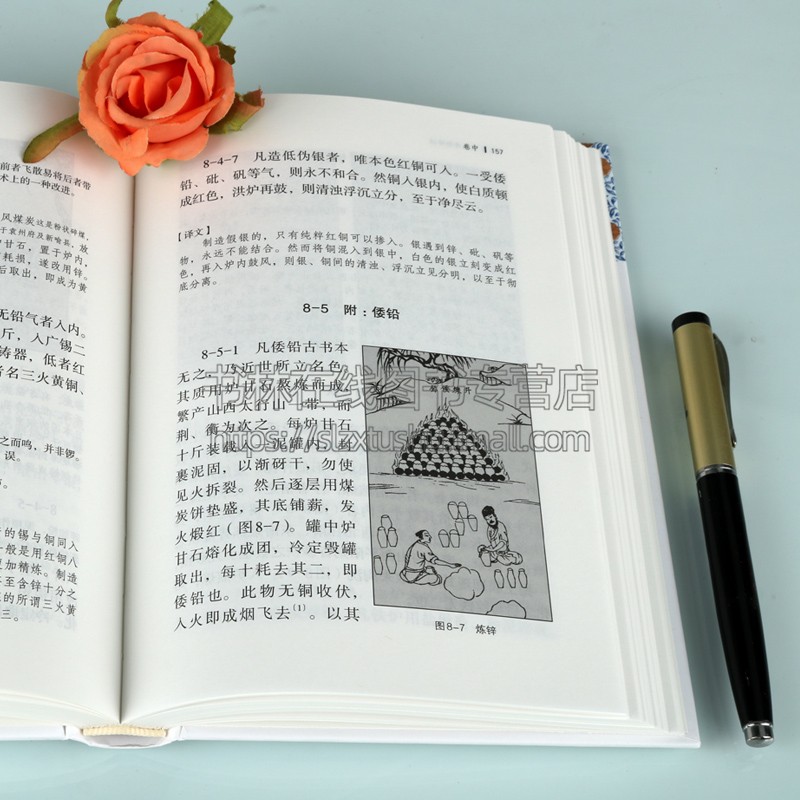 前者飞散易将后者带
术上的一种改进。
风煤炭这是粉状碎煤,
于袁州府及新喻县,放
炉甘石,置于炉内,
有耗损,遂改用锌。
后取出,即成为黄
无铅气者入内。
斤,入广锡二
铸器,低者红
者名三火黄铜、
之而鸣,并非锣。
误。
的锡与铜同入
一般是用红铜八
更加精炼。制造
至含锌十分之
的所谓三火黄
三。
8-4-5
卷中 157
8-4-7 凡造低伪银者,唯本色红铜可入。一受倭
铅、砒、矾等气,则永不和合。然铜入银内,使白质顿
成红色,洪炉再鼓,则清浊浮沉立分,至于净尽云。
【译文】
制造假银的,只有纯粹红铜可以掺入。银遇到锌、砒、矾等
物,永远不能结合。然而将铜混入到银中,白色的银立刻变成红
色,再入炉内鼓风,则银、铜间的清浊、浮沉立见分明,以至于彻
底分离。
8-5 附:倭铅
8-5-1 凡倭铅古书本
无之,乃近世所立名色。
其质用炉甘石熬炼而成,
繁产山西太行山一带,而
荆、衡为次之。每炉甘石
十斤装载入一泥罐内,封
裹泥固,以渐砑干,勿使
见火拆裂。然后逐层用煤
炭饼垫盛,其底铺薪,发
火煅红(图8-7)。罐中炉
甘石熔化成团,冷定毁罐
取出,每十耗去其二,即
倭铅也。此物无铜收伏,
入火即成烟飞去〔1〕。以其
升炼倭铅
图8-7 炼锌
书沫在线图书专营店
https://slzxtush.tmall.com